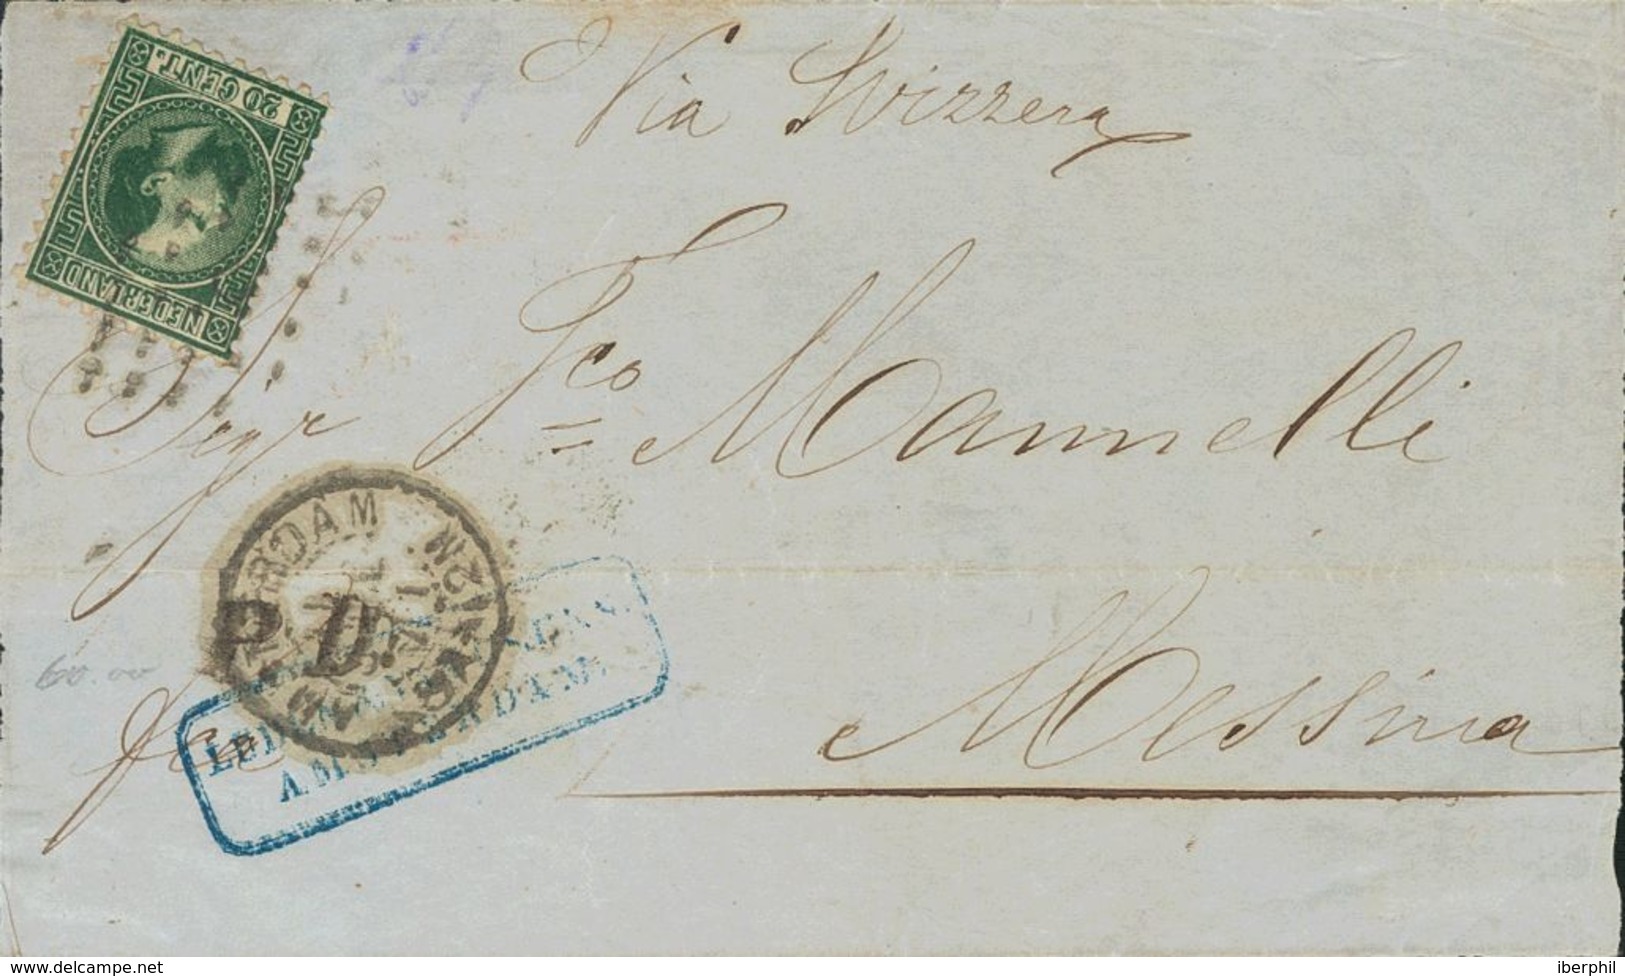 Via Svizzera
20 CENT.
NEDERLAND
Sigr Fco Mannelli
AMSTERDAM
P.D.
AMSTERDAM
fco
Messina
60.00
delcampe.net
iberphil